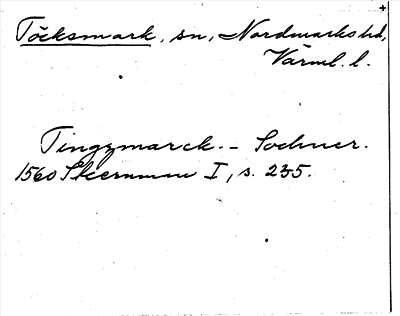 Töcksmark, sn, Nordmarks hd,
Värml. l.
Tingzmarck. – Sochner.
1560 Stiernman I, s. 235.